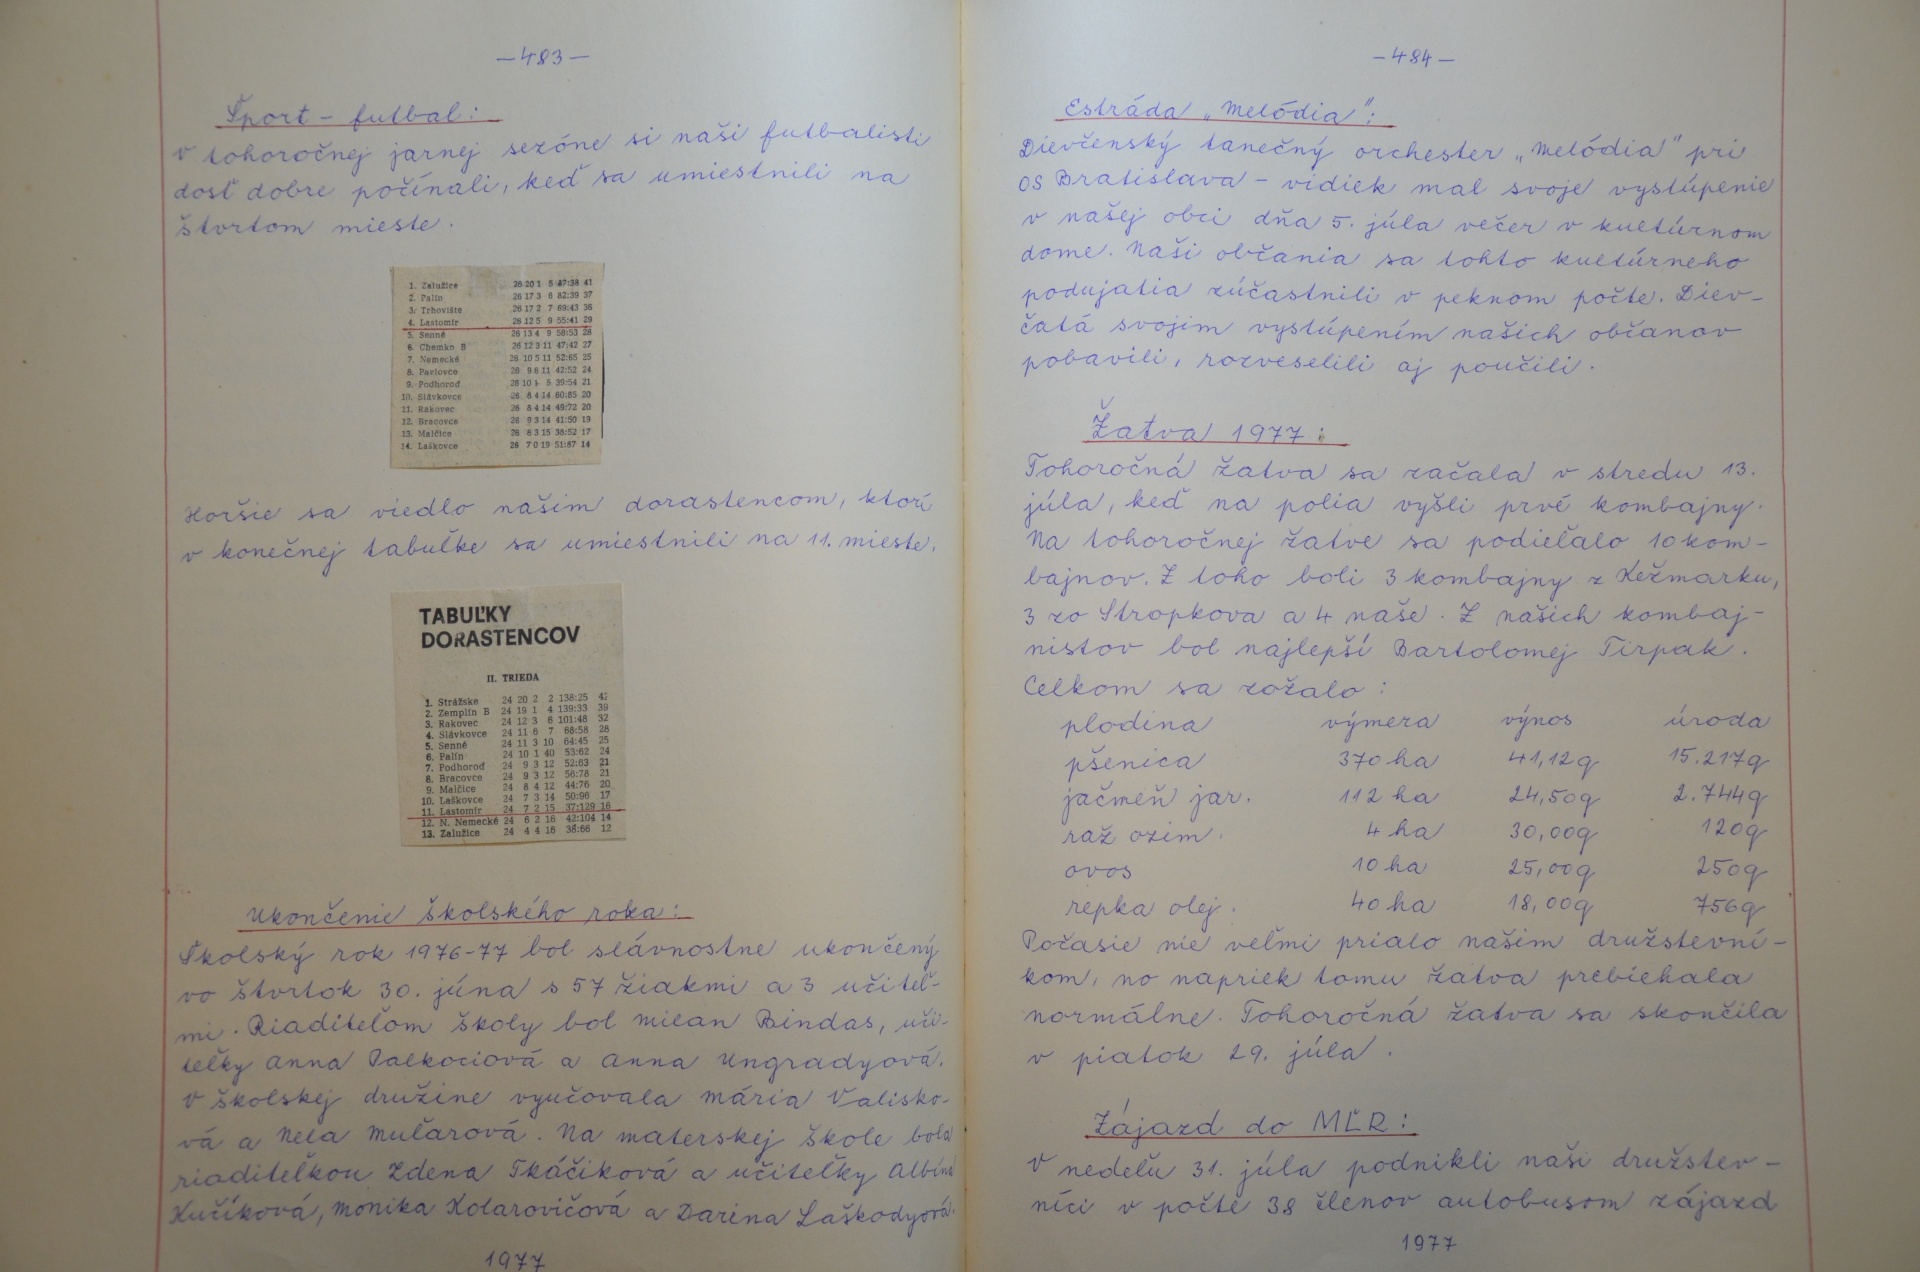 -483-
Šport - futbal:
V tohoročnej jarnej sezóne si naši futbalisti
dosť dobre počínali, keď sa umiestnili na
štvrtom mieste.
1. Zalužice 26 20 1 5 87:38 41
2. Palín 26 17 3 6 82:39 37
3. Trhovište 26 17 2 7 69:43 36
4. Lastomír 26 12 5 9 55:41 29
5. Senné 26 13 4 9 58:53 28
6. Chemko B 26 12 3 11 47:42 27
7. Nemecké 26 10 5 11 52:65 25
8. Pavlovce 26 9 6 11 42:52 24
9. Podhoroď 26 10 1 5 39:54 21
10. Slávkovce 26 8 4 14 60:85 20
11. Rakovec 26 8 4 14 49:72 20
12. Bracovce 26 9 3 14 41:50 19
13. Malčice 26 8 3 15 38:52 17
14. Laškovce 26 7 0 19 51:87 14
Horšie sa viedlo našim dorastencom, ktorí
v konečnej tabuľke sa umiestnili na 11. mieste.
TABUĽKY
DORASTENCOV
II. TRIEDA
1. Strážske 24 20 2 2 138:25 42
2. Zemplín B 24 19 1 4 139:33 39
3. Rakovec 24 12 3 6 101:48 32
4. Slávkovce 24 11 6 7 68:58 28
5. Senné 24 11 3 10 64:45 25
6. Palín 24 10 1 40 53:62 24
7. Podhoroď 24 9 3 12 52:63 21
8. Bracovce 24 9 3 12 56:78 21
9. Malčice 24 8 4 12 44:76 20
10. Laškovce 24 7 3 14 50:96 17
11. Lastomír 24 7 2 15 37:129 16
12. N. Nemecké 24 6 2 16 42:104 14
13. Zalužice 24 4 4 16 38:66 12
Ukončenie školského roka:
Školský rok 1976-77 bol slávnostne ukončený
vo štvrtok 30. júna s 57 žiakmi a 3 učiteľ-
mi. Riaditeľom školy bol Milan Bindas, uči-
teľky Anna Paľkociová a Anna Ungradyová.
V školskej družine vyučovala Mária Valisko-
vá a Nela Muľarová. Na materskej škole bola
riaditeľkou Zdena Tkáčiková a učiteľky Albína
Kučíková, Monika Kolarovičová a Darina Laškodyová.
1977
-484-
Estráda „Melódia":
Dievčenský tanečný orchester „Melódia" pri
OS Bratislava - vidiek mal svoje vystúpenie
v našej obci dňa 5. júla večer v kultúrnom
dome. Naši občania sa tohto kultúrneho
podujatia zúčastnili v peknom počte. Diev-
čatá svojim vystúpením našich občanov
pobavili, rozveselili aj poučili.
Žatva 1977:
Tohoročná žatva sa začala v stredu 13.
júla, keď na polia vyšli prvé kombajny.
Na tohoročnej žatve sa podieľalo 10 kom-
bajnov. Z toho boli 3 kombajny z Kežmarku,
3 zo Stropkova a 4 naše. Z našich kombaj-
nistov bol najlepší Bartolomej Tirpak.
Celkom sa zožalo:
plodina výmera výnos úroda
pšenica 370 ha 41,12q 15.217q
jačmeň jar. 112 ha 24,50q 2.744q
raž ozim. 4 ha 30,00q 120q
ovos 10 ha 25,00q 250q
repka olej. 40 ha 18,00q 756q
Počasie nie veľmi prialo našim družstevní-
kom, no napriek tomu žatva prebiehala
normálne. Tohoročná žatva sa skončila
v piatok 29. júla.
Zájazd do MĽR:
V nedeľu 31. júla podnikli naši družstev-
níci v počte 38 členov autobusom zájazd
1977